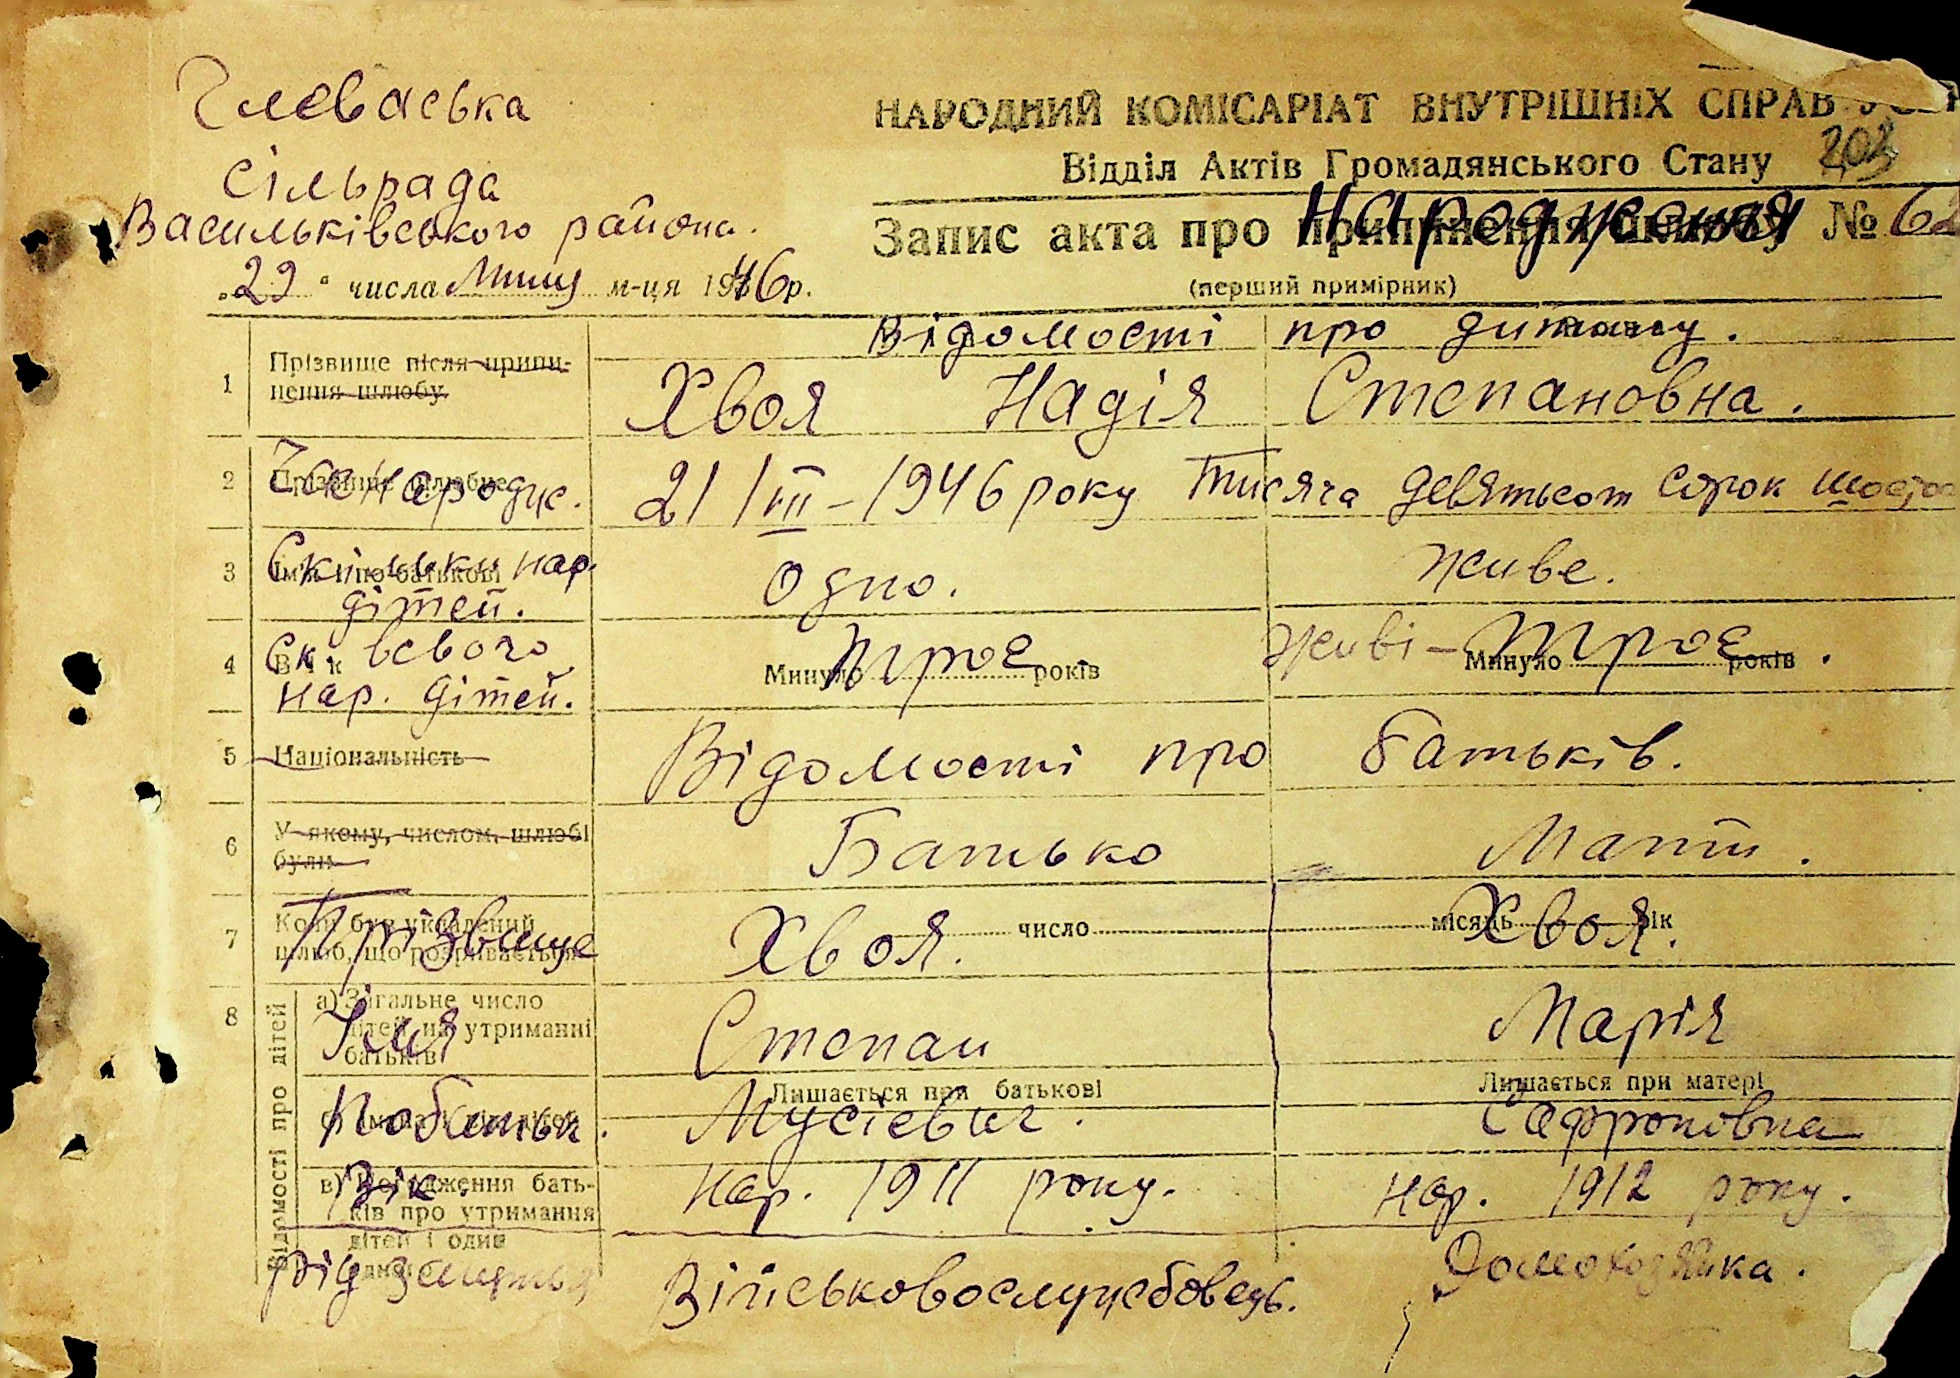 Глеваська
сільрада
Васильківського района.
НАРОДНИЙ КОМІСАРІАТ ВНУТРІШНІХ СПРАВ
Відділ Актів Громадянського Стану 203
Запис акта про народження № 62
(перший примірник)
"29" числа м-ця 1946 р.
Відомості про дитину.
1 Прізвище після припи-
нення шлюбу.
Хвоя Надія Степановна.
2 Прізвище дошлюбне
Коли народж. 21/III – 1946 року Тисяча девятьсот сорок
3 Ім'я і по батькові
Скільки нар.
дітей.
Одно. Живе.
4 Вік
Ск. всього
нар. дітей.
Минуло Троє років Живі – Минуло Троє років.
5 Національність
Відомості про батьків.
6 У якому, числом, шлюбі
були
Батько Мати.
7 Коли був укладений
шлюб, що розривається
Прізвище Хвоя. число місяць Хвоя. рік
8 Відомості про дітей
а) Загальне число
дітей на утриманні
батьків
Імя Степан Марія
Лишається при батькові Лишається при матері
Побатьк. Мусієвич. Сафроновна
в) Погодження бать-
ків про утримання
дітей і один
одного
Вік. нар. 1911 року. нар. 1912 року.
Рід заняття Війсьовослужбовець. Домохозяйка.